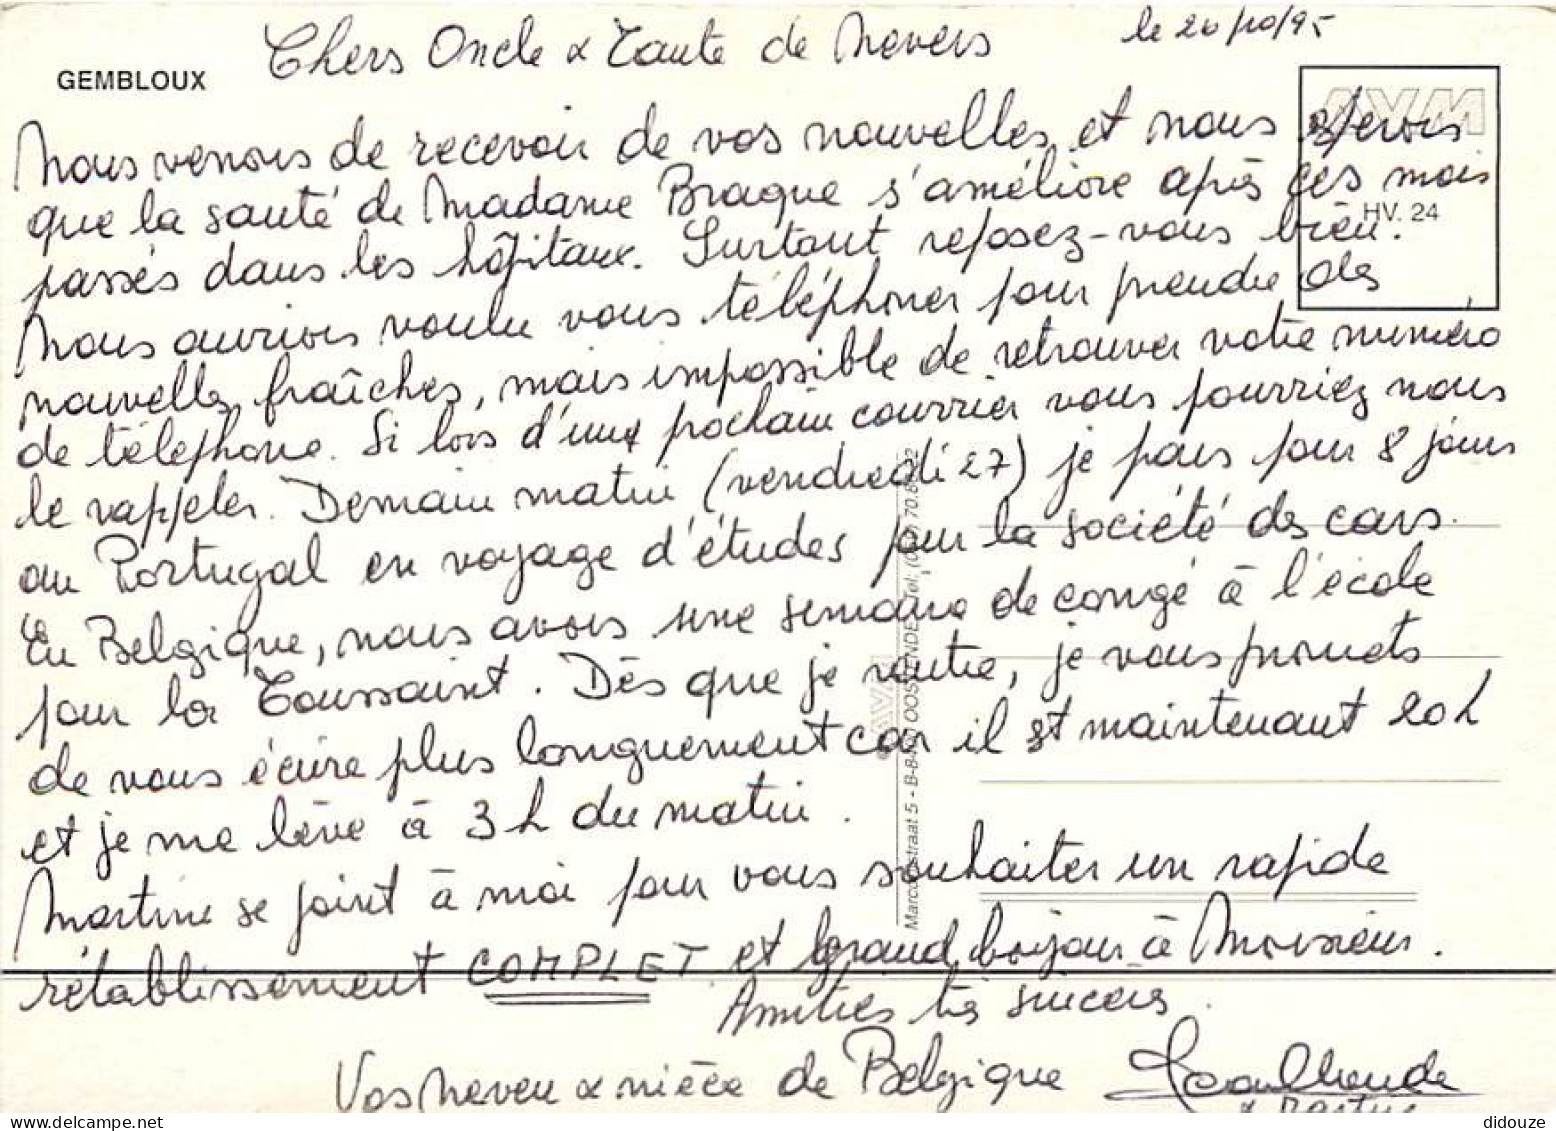 le 26/10/95
Chers Oncle & Tante de Nevers
GEMBLOUX
Nous venons de recevoir de vos nouvelles et nous espérons
que la santé de Madame Braque s'améliore après ces mois
HV. 24
passés dans les hôpitaux. Surtout reposez-vous bien.
Nous aurions voulu vous téléphoner pour prendre des
nouvelles fraîches, mais impossible de retrouver votre numéro
de téléphone. Si lors d'un prochain courrier vous pourriez nous
le rappeler. Demain matin (vendredi 27) je pars pour 8 jours
au Portugal en voyage d'études pour la société des cars.
En Belgique, nous avons une semaine de congé à l'école
pour la Toussaint. Dès que je rentre, je vous promets
de vous écrire plus longuement car il est maintenant 20h
et je me lève à 3h du matin.
Martine se joint à moi pour vous souhaiter un rapide
rétablissement COMPLET et grand bonjour à Monsieur.
Amitiés très sincères.
Vos neveu & nièce de Belgique Jean Claude
& Martine
didouze